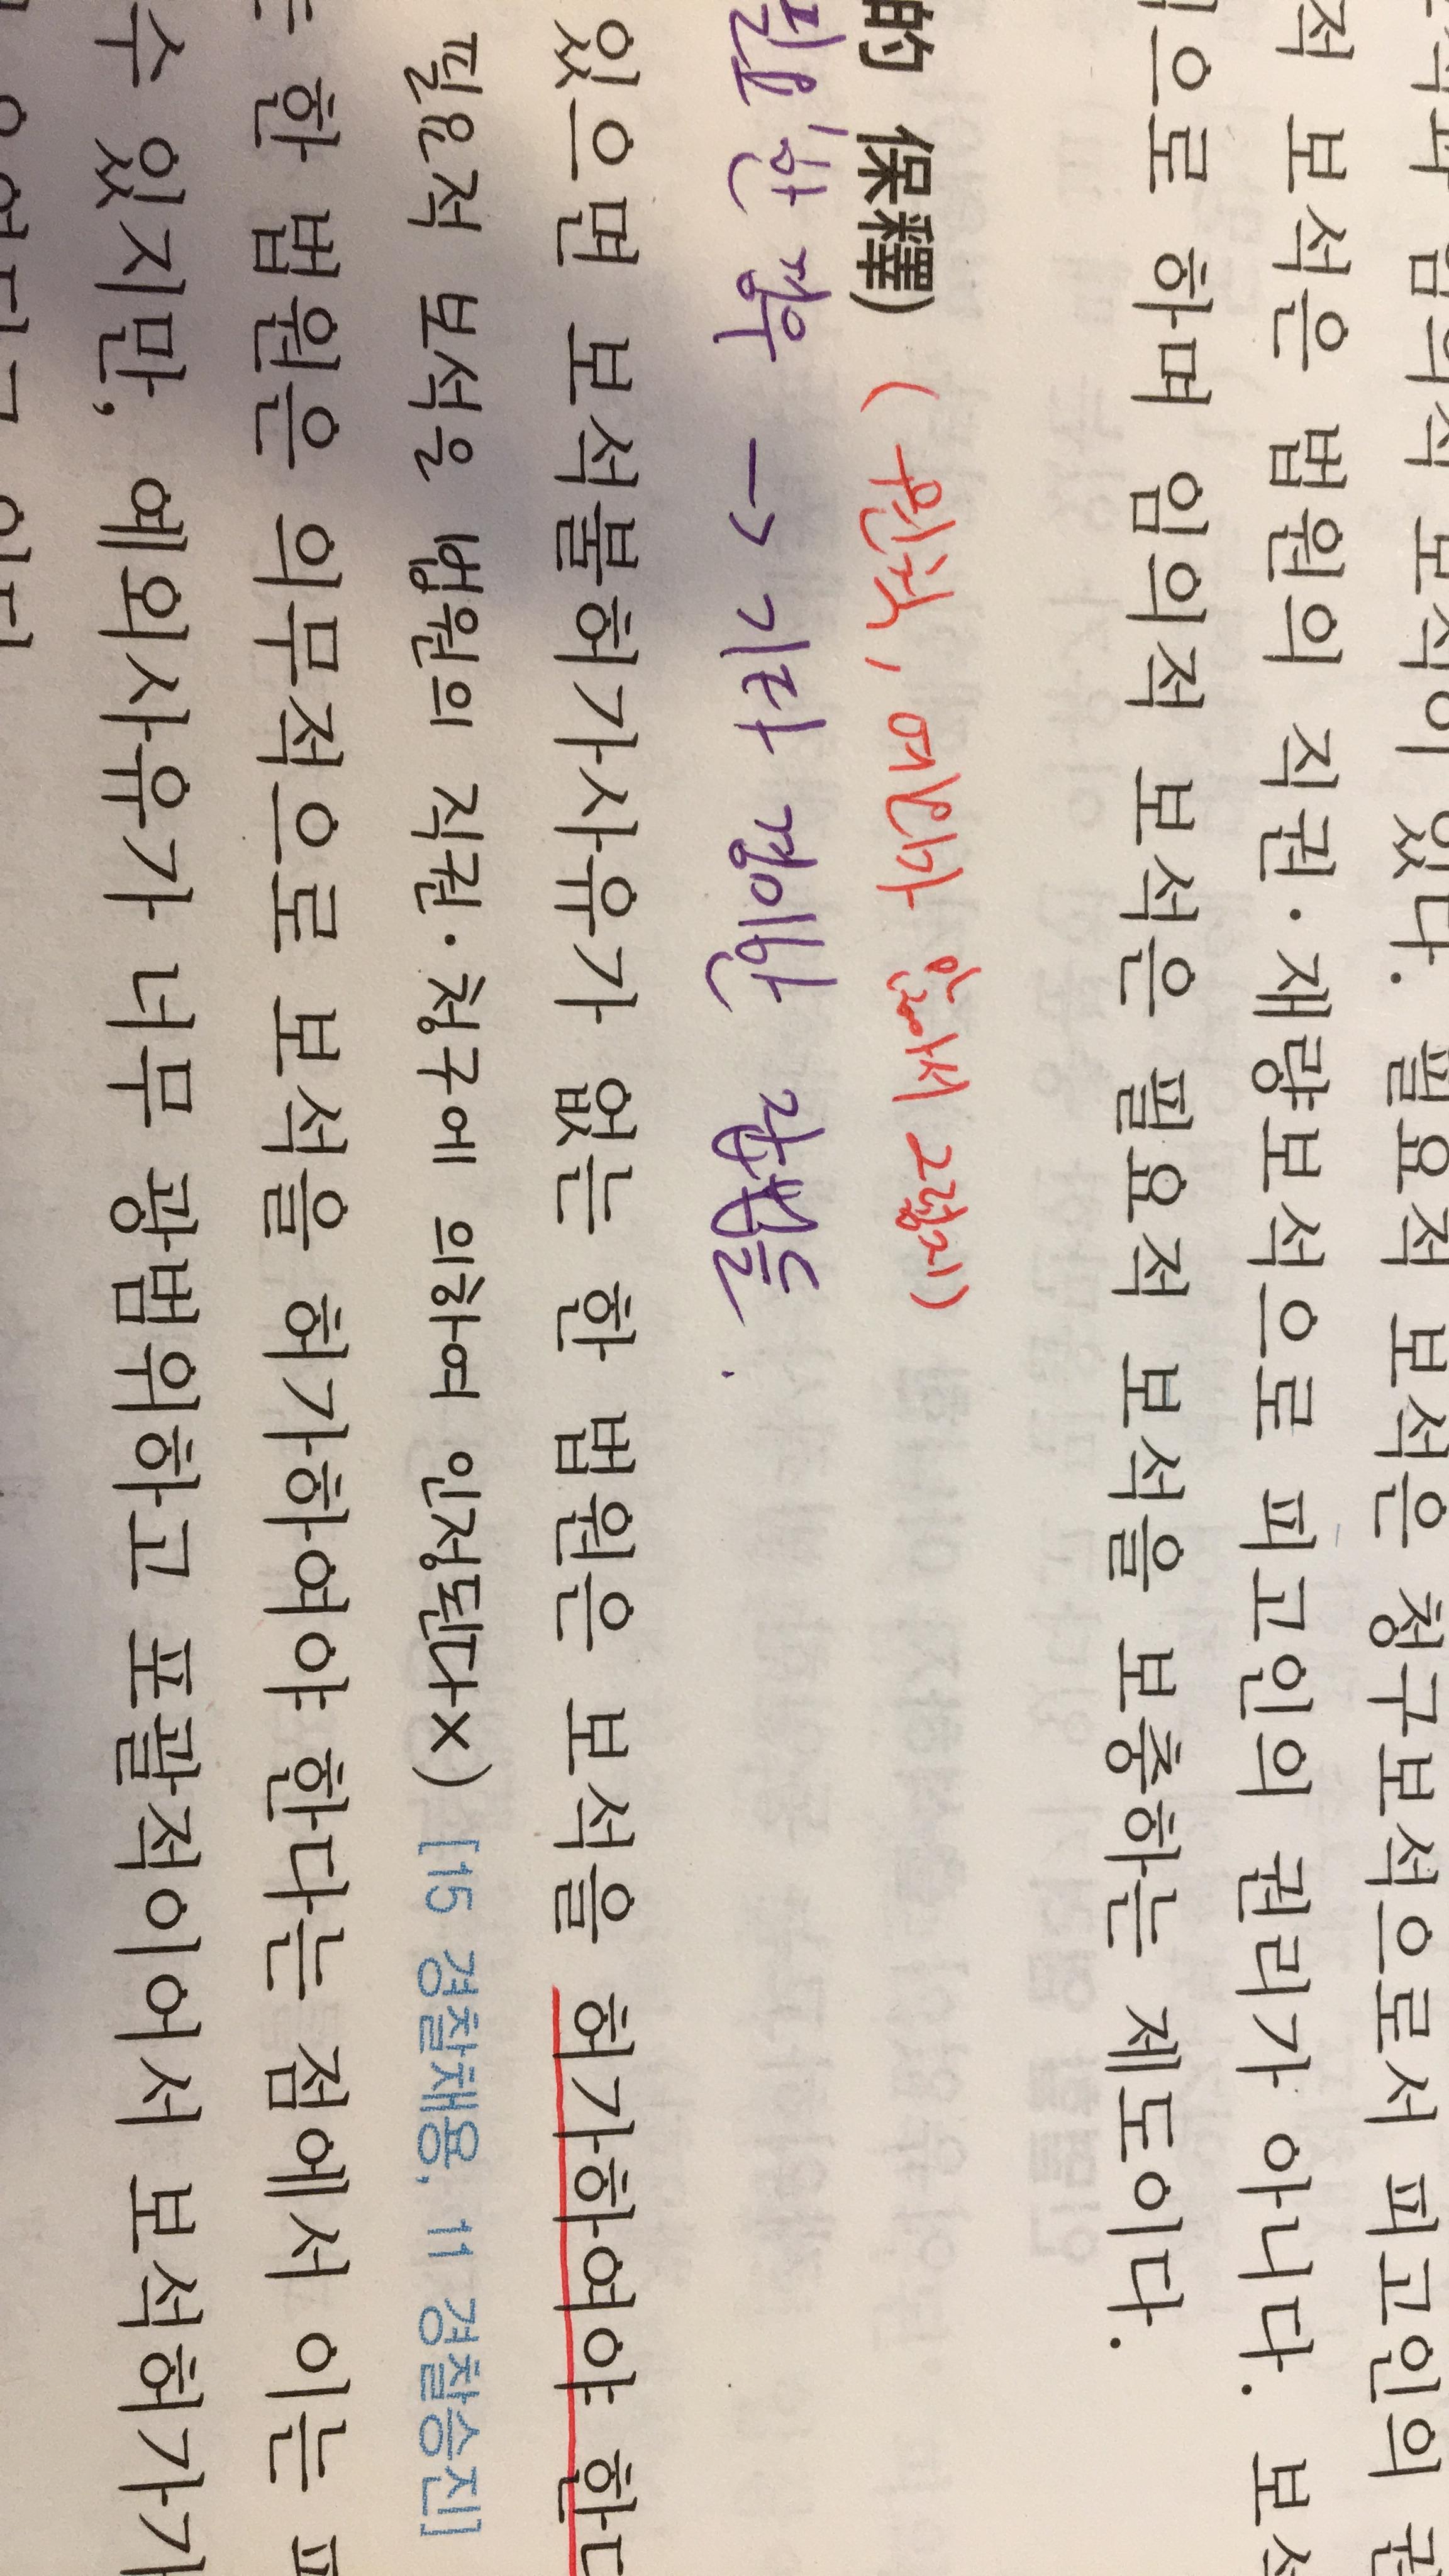 보석이 있다. 필요적 보석은 청구보석으로서 피고인의
적 보석은 법원의 직권·재량보석으로 피고인의 권리가 아니다. 보석
으로 하며 임의적 보석은 필요적 보석을 보충하는 제도이다.
的 保釋) (원칙, 예외가 많아서 그렇지)
필요한 경우 → 기타 경미한 과벌들.
있으면 보석불허가사유가 없는 한 법원은 보석을 허가하여야 한다
필요적 보석은 법원의 직권·청구에 의하여 인정된다×) [15 경찰채용, 11 경찰승진]
는 한 법원은 의무적으로 보석을 허가하여야 한다는 점에서 이는
수 있지만, 예외사유가 너무 광범위하고 포괄적이어서 보석허가가